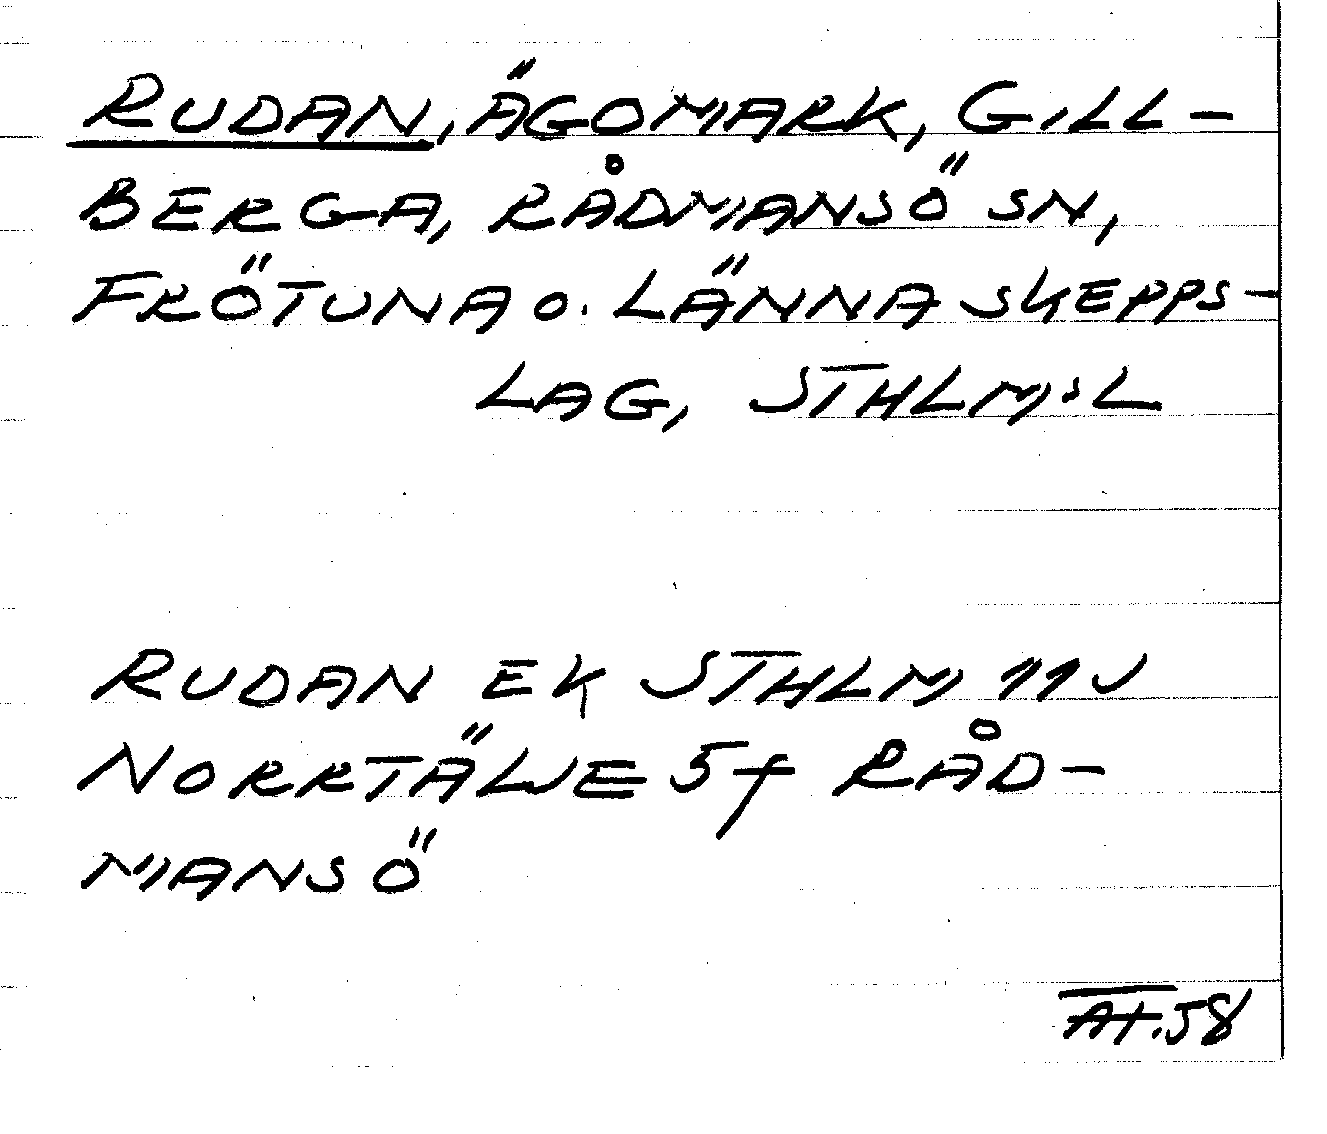 RUDAN, ÄGOMARK, GILL-
BERGA, RÅDMANSÖ SN,
FRÖTUNA O. LÄNNA SKEPPS-
LAG, STHLM:S L
RUDAN EK STHLM 11J
NORRTÄLJE 5f RÅD-
MANSÖ